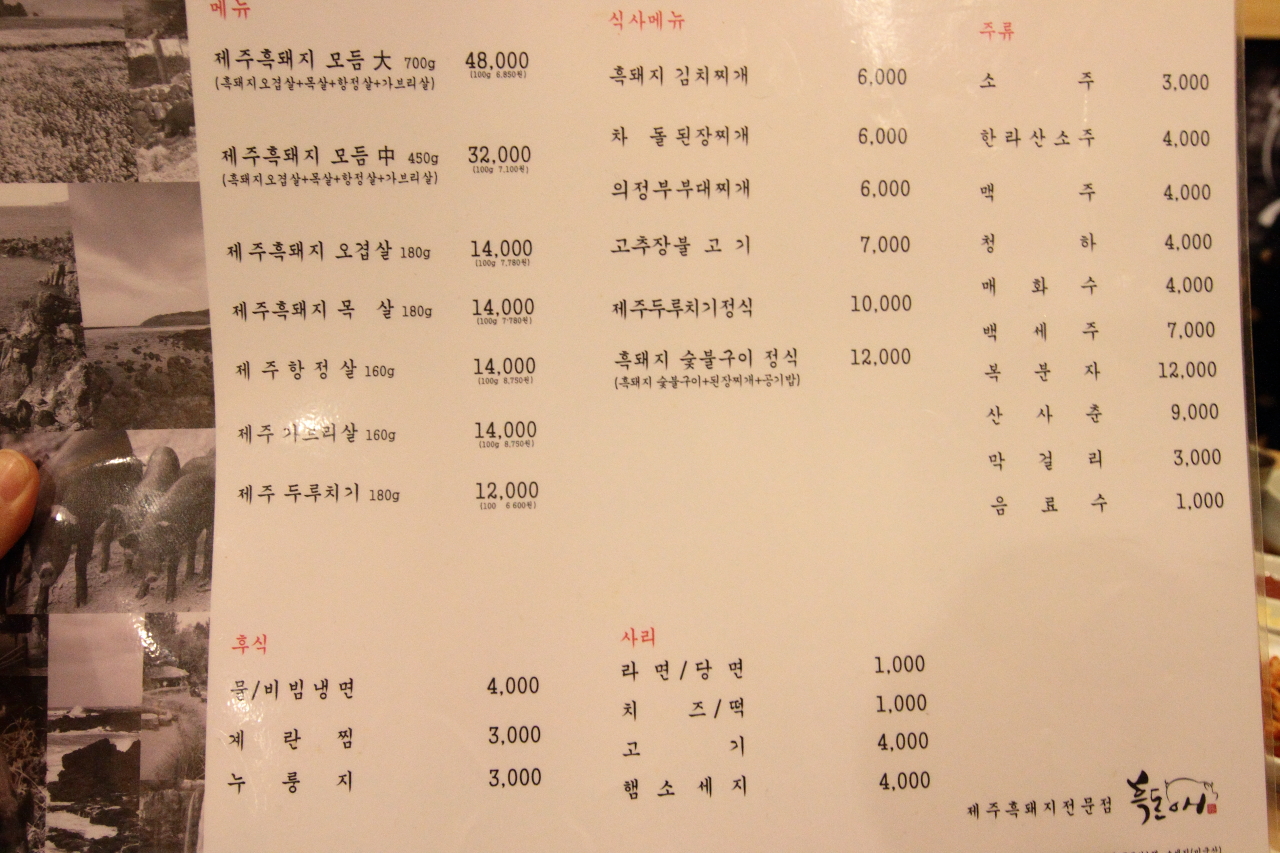 메뉴
제주흑돼지 모듬 大 700g 48,000
(흑돼지오겹살+목살+항정살+가브리살) (100g 6,850원)
제주흑돼지 모듬 中 450g 32,000
(흑돼지오겹살+목살+항정살+가브리살) (100g 7,100원)
제주흑돼지 오겹살 180g 14,000
(100g 7,780원)
제주흑돼지 목 살 180g 14,000
(100g 7,780원)
제주항정살 160g 14,000
(100g 8,750원)
제주 가브리살 160g 14,000
(100g 8,750원)
제주 두루치기 180g 12,000
(100 6 600원)
식사메뉴
흑돼지 김치찌개 6,000
차 돌된장찌개 6,000
의정부부대찌개 6,000
고추장불 고기 7,000
제주두루치기정식 10,000
흑돼지 숯불구이 정식 12,000
(흑돼지 숯불구이+된장찌개+공기밥)
주류
소 주 3,000
한라산소주 4,000
맥 주 4,000
청 하 4,000
매 화 수 4,000
백 세 주 7,000
복 분 자 12,000
산 사 춘 9,000
막 걸 리 3,000
음 료 수 1,000
후식
물/비빔냉면 4,000
계 란 찜 3,000
누 룽 지 3,000
사리
라 면/당 면 1,000
치 즈/떡 1,000
고 기 4,000
햄 소 세 지 4,000
제주흑돼지전문점 흑돈애